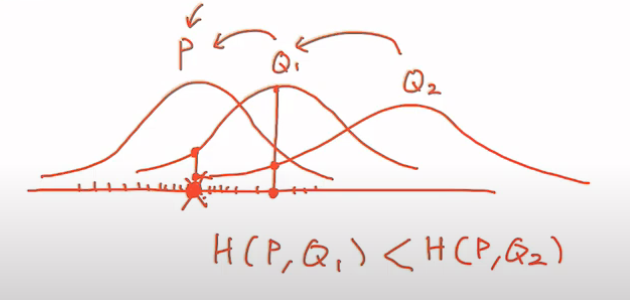 P
Q₁
Q₂
H(P,Q₁) < H(P,Q₂)